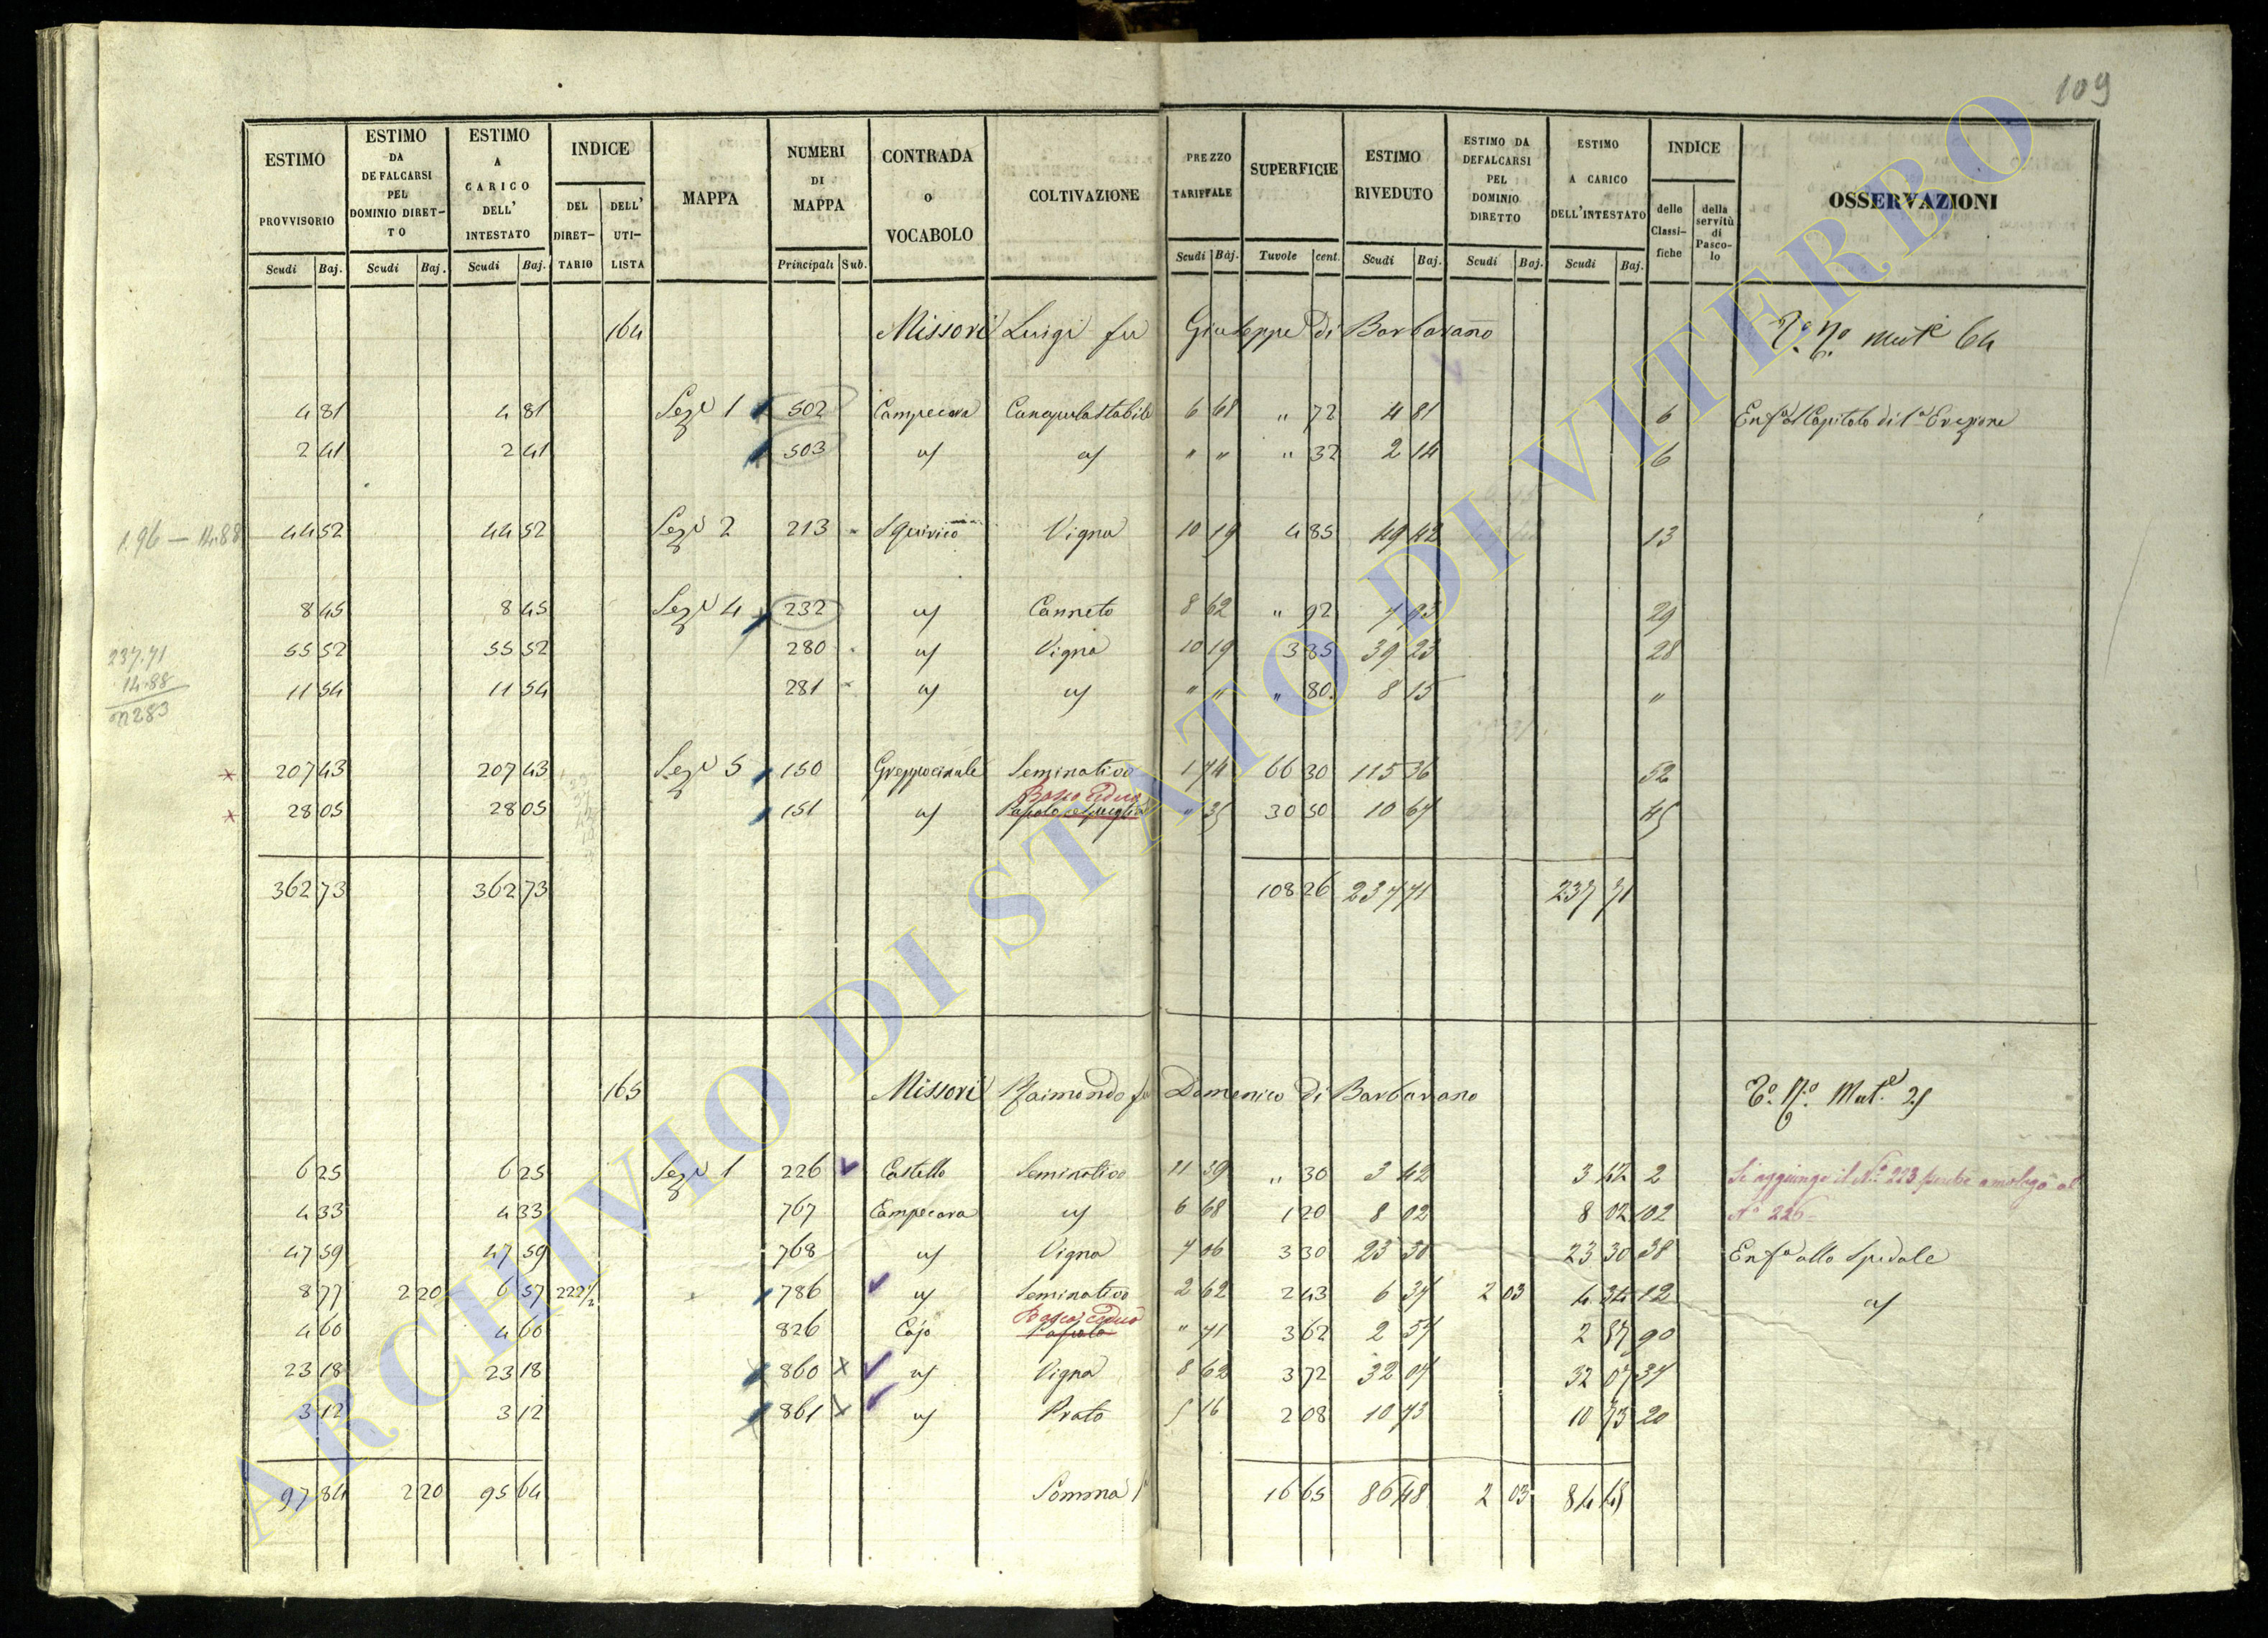 109
ESTIMO PROVVISORIO | ESTIMO DA DEFALCARSI PEL DOMINIO DIRET-TO | ESTIMO A CARICO DELL' INTESTATO | INDICE | MAPPA | NUMERI DI MAPPA | CONTRADA o VOCABOLO | COLTIVAZIONE | PREZZO TARIFFALE | SUPERFICIE | ESTIMO RIVEDUTO | ESTIMO DA DEFALCARSI PEL DOMINIO DIRETTO | ESTIMO A CARICO DELL'INTESTATO | INDICE | OSSERVAZIONI
DEL DIRET-TARIO | DELL' UTI-LISTA | delle Classi-fiche | della servitù di Pasco-lo
Scudi | Baj. | Scudi | Baj. | Scudi | Baj. | Principali | Sub. | Scudi | Baj. | Tavole | cent. | Scudi | Baj. | Scudi | Baj. | Scudi | Baj.
164 Missori Luigi fu Giuseppe di Barbarano 64
4 81 | 4 81 | Sez. 1 | 502 | Campecora | 6 68 | " 72 | 4 81 | 6 | Capitolo di
2 41 | 2 41 | 503 | " " | " 32 | 2 14 | 6
1.96 — 14.88
44 52 | 44 52 | Sez. 2 | 213 | Vigna | 10 19 | 4 85 | 49 42 | 13
8 45 | 8 45 | Sez. 4 | 232 | Canneto | 8 62 | " 92 | 7 93 | 29
237.71
14.88
55 52 | 55 52 | 280 | Vigna | 10 19 | 3 85 | 39 23 | 28
11 54 | 11 54 | 281 | " " | " 80 | 8 15 | "
207 43 | 207 43 | Sez. 5 | 150 | Seminativo | 1 74 | 66 30 | 115 36 | 52
Bosco ceduo
28 05 | 28 05 | 151 | " 35 | 30 50 | 10 67 | 45
362 73 | 362 73 | 108 26 | 237 71 | 237 71
165 Missori Raimondo fu Domenico di Barbarano
6 25 | 6 25 | Sez. 1 | 226 | Castello | Seminativo | 11 39 | " 30 | 3 42 | 3 42 | 2 | Si aggiunge il N.° 223 perchè
4 33 | 4 33 | 767 | Campecora | 6 68 | 1 20 | 8 02 | 8 02 | 102 | N° 226
47 59 | 47 59 | 768 | Vigna | 7 06 | 3 30 | 23 30 | 23 30 | 38 | allo Spedale
8 77 | 2 20 | 6 57 | 222 1/2 | 786 | Seminativo | 2 62 | 2 43 | 6 37 | 2 03 | 4 34 | 12
Bosco ceduo
4 60 | 4 60 | 826 | Cajo | " 71 | 3 62 | 2 57 | 2 57 | 90
23 18 | 23 18 | 860 | Vigna | 8 62 | 3 72 | 32 07 | 32 07 | 37
3 12 | 3 12 | 861 | Prato | 5 16 | 2 08 | 10 73 | 10 73 | 20
97 84 | 2 20 | 95 64 | Somma | 16 65 | 86 48 | 2 03 | 84 45
ARCHIVIO DI STATO DI VITERBO